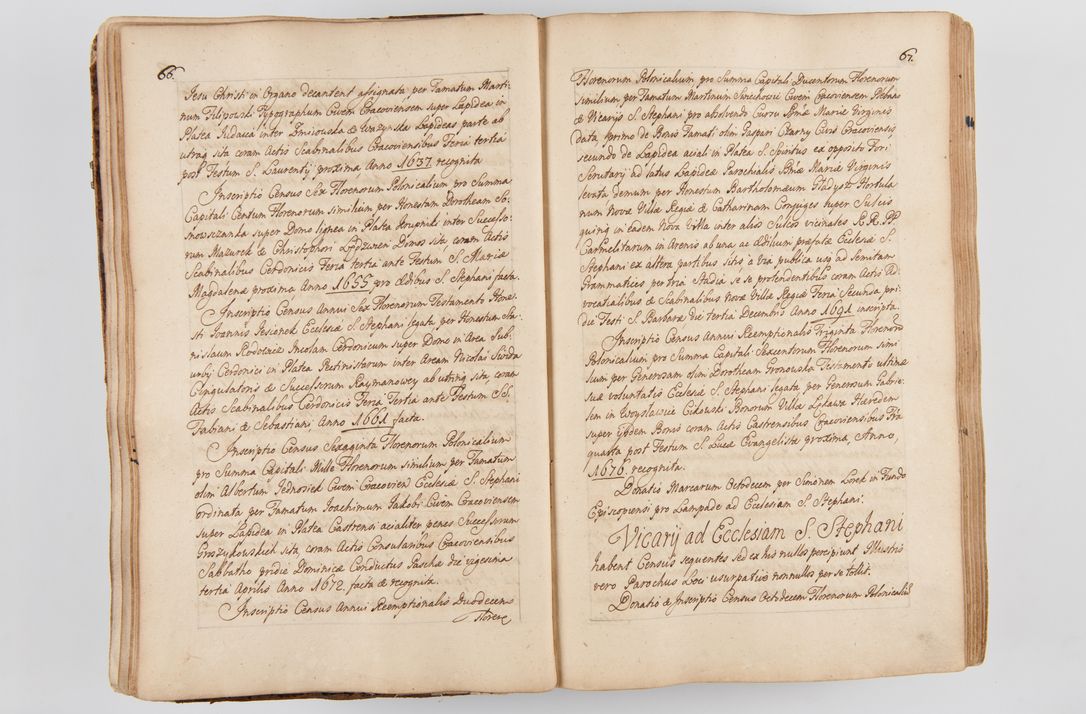 66.
Jesu Christi in Organo decantent assignata per Famatum Marti-
num Filipowski Typographum Civem Cracoviensem super Lapidea in
Platea Judaica inter Zmiiowska & Wazynska Lapideas parte ab
utraq sita coram Actis Scabinalibus Cracoviensibus Feria tertia
post Festum S. Laurentij proxima Anno 1637. recognita
Inscriptio Census Sex Florenorum Polonicalium pro Summa
Capitali Centum Florenorum similium per Honestam Dorotheam So-
snowszanka super Domo lignea in Platea Krupniki inter Successo-
rum Mazurek & Christophori Domos sita coram Actis
Scabinalibus Cerdonicis Feria tertia ante Festum S. Mariæ
Magdalenæ proxima Anno 1655 pro Ædibus S. Stephani facta.
Inscriptio Census Annui Sex Florenorum Testamento Hones-
ti Joannis Jesionek Ecclesiæ S. Stephani legata per Honestum Sta-
nislaum Rodolecie Incolam Cerdonicum super Domo in Area Sub-
urbij Cerdonici in Platea Pectinistarum inter Aream Nicolai Swida
Cingulatoris & Successorum Raymanowey ab utrinq sita, coram
Actis Scabinalibus Cerdonicis Feria Tertia ante Festum SS.
Fabiani & Sebastiani Anno 1661. facta.
Inscriptio Census Sexaginta Florenorum Polonicalium
pro Summa Capitali Mille Florenorum similium per Famatum
olim Albertum Jednoziek Civem Cracovien Ecclesiæ S. Stephani
ordinata per Famatum Joachimum Jakobi Civem Cracoviensem
super Lapidea in Platea Castrensi acialiter penes Successorum
Groszykowskich sita coram Actis Consularibus Cracoviensibus
Sabbatho pridie Dominicæ Conductus Paschæ die vigesima
tertia Aprilis Anno 1672. facta & recognita.
Inscriptio Census Annui Reemptionalis Duodecem
Floreno
67.
Florenorum Polonicalium pro Summa Capitali Ducentorum Florenorum
similium per Famatum Martinum Civem Cracoviensem Plebano
& Vicarijs S. Stephani pro absolvendo Cursu Bmæ Mariæ Virginis
data, primo de Bonis Famati olim Gaspari Czarny Civis Cracoviensis
secundo de Lapidea aciali in Platea S. Spiritus ex opposito Fori
Scrutarij ad latus Lapideæ Parochialis Bmæ Mariæ Virginis
levata demum per Honestum Bartholomæum Gladysz Hortula
num Novæ Villæ Regiæ & Catharinam Conjuges super Sulcis
quinq in eadem Nova Villa inter alios Sulcos vicinales R.R.PP.
Carmelitarum in Arenis ab una ac Ædilium præfatæ Ecclesiæ S.
Stephani ex altera partibus sitis a via publica usq ad Semitam
Grammatices per tria Stadia se se protendentibus coram Actis Ad
vocatialibus & Scabinalibus Novæ Villæ Regiæ Feria Secunda pri-
die Festi S. Barbaræ die tertia Decembris Anno 1691. inscripta.
Inscriptio Census Annui Reemptionalis Triginta Florenoro
Polonicalium pro Summa Capitali Sexcentorum Florenorum simi
lium per Generosam olim Dorotheam Gronowska Testamento ultimæ
suæ voluntatis Ecclesiæ S. Stephani legata per Generosum Gabrie-
lem in Woyslawice Cikowski Bonorum Villæ Lysawa Hæredem
super ijsdem Bonis coram Actis Castrensibus Cracoviensibus Fra
quarta post Festum S. Lucæ Evangelistæ proxima, Anno,
1676. recognita.
Donatio Marcarum Octodecem per Simonem Lorek in Fundo
Episcopiensi pro Lampade ad Ecclesiam S. Stephani.
Vicarij ad Ecclesiam S. Stephani
habent Census sequentes sed ex his nullos percipiunt Illustris
vero Parochus Loci usurpativo nonnullos per se tollit.
Donatio & Inscriptio Census Octodecem Florenorum Polonicaliu